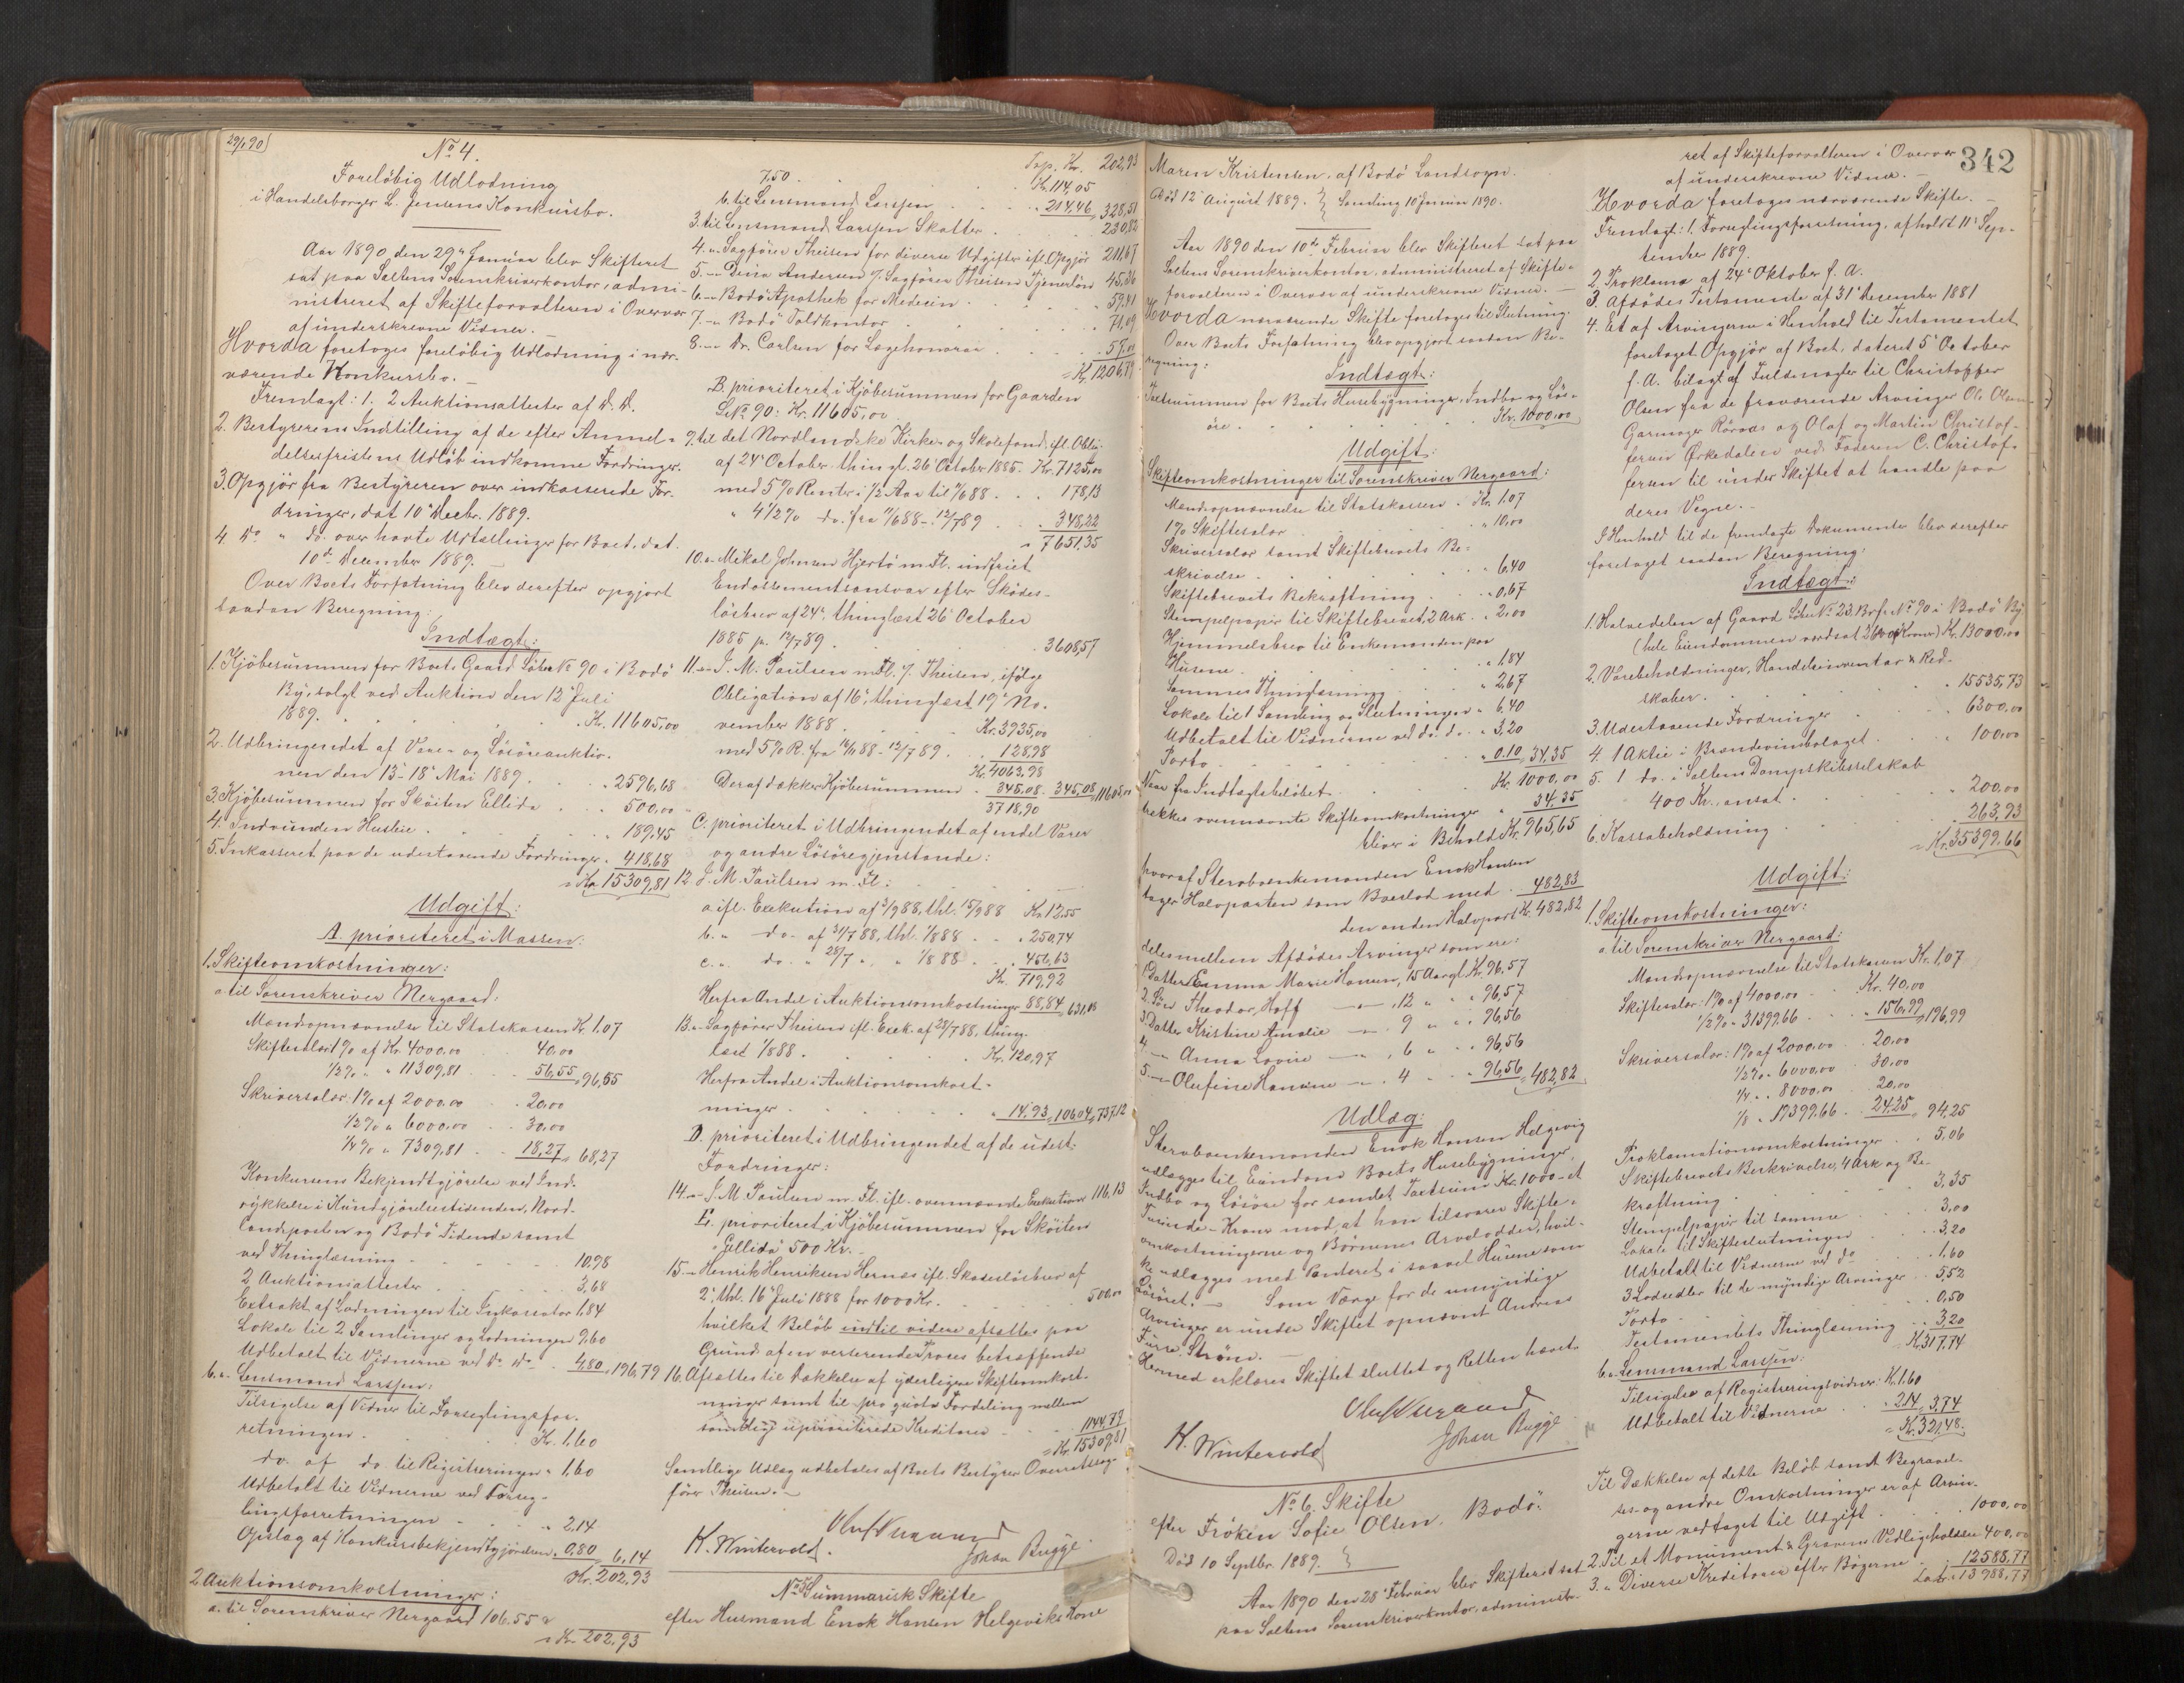 29/1 90
No 4.
Foreløbig Udlodning
i Handelsborger L. Jensens Konkursbo.
Aar 1890, den 29de Januar blev Skifteret
sat paa Saltens Sorenskriverkontor, admi-
nistreret af Skifteforvalteren i Overvær
af underskrevne Vidner. -
Hvorda foretoges foreløbig Udlodning i nær-
værende Konkursbo. -
Fremlagt: 1. 2 Auktionsattester af D. D.
2. Bestyrerens Indstilling af de efter Anmel-
delsesfristens Udløb indkomne Fordringer.
3. Opgjør fra Bestyreren over indkasserede For-
dringer, dat 10de Decbr. 1889.
4. Do " do. over havte Udtællinger for Boet, dat.
10de December 1889. -
Over Boets Forfatning blev derefter opgjort
saadan Beregning:
Indtægt:
1. Kjøbesummen for Boets Gaard Løbe No 90 i Bodø
By, solgt ved Auktion den 12te Juli
1889. Kr. 11605,00
2. Udbringendet af Vare- og Løsøreauktio-
nen den 13-18de Mai 1889 . . " 2596,68
3. Kjøbesummen for Skøiten Ellida . . " 500,00
4. Indvunden Husleie . . " 189,45
5. Inkasseret paa de udestaaende Fordringer " 418,68
= Kr. 15309,81
Udgift:
A. prioriteret i Massen:
1. Skifteomkostninger:
a. til Sorenskriver Nergaard:
Mandsopnævnelse til Statskassen Kr. 1.07
Skiftesalær: 1% af Kr. 4000,00 40,00
1/2% " " 11309,81 . . 56,55 " 96,55
Skriversalær: 1% af 2000,00 . . 20,00
1/2% " 6000,00 . . 30,00
1/4% " 7309,81 . . 18,27 " 68,27
Konkursens Bekjendtgjørelse ved Ind-
rykkelse i Kundgjørelsestidenden, Nord-
landsposten og Bodø Tidende samt
ved Thinglæsning . . 10,98
2 Auktionsattester . . 3,68
Extrakt af Lodningen til Inkasator 1,84
Lokale til 2 Samlinger og Lodningen 9,60
Udbetalt til Vidnerne ved do do . . 4,80 " 196,79
b. " Lensmand Larssen:
Tilsigelse af Vidner til Forseglingsfor-
retningen . . Kr. 1,60
do. af do til Registreringen " 1,60
Udbetalt til Vidnerne ved Forseg-
lingsforretningen . . " 2,14
Opslag af Konkursbekjendtgjørelsen " 0,80 " 6,14
Kr. 202,93
2. Auktionsomkostninger:
a. til Sorenskriver Nergaard 106.55 &
= Kr. 202,93
Trp. Kr. 202,93
7,50 . . Kr. 114,05
b. til Lensmand Larssen . . " 214,46 " 328,51
3. til Lensmand Larssen Skatter . . 230,82
4. " Sagfører Theisen for diverse Udgifter ifl. Opgjør 211,67
5. " Dina Andersen v. Sagfører Theisen Tjenerløn 45,36
6. " Bodø Apothek for Medecin . . " 59,41
7. " Bodø Toldkontor . . " 71,09
8. " Dr. Carlsen for Lægehonorar . . " 57,00
= Kr. 1206,79
B. prioriteret i Kjøbesummen for Gaarden
L.No 90: Kr. 11605,00
9. til det Nordlandske Kirke- og Skolefond, ifl. Obli.
af 24de October thingl. 26de October 1885. Kr. 7125,00
med 5% Renter i 1/2 Aar til 11/6 88 . . . 178,13
" 4 1/2% do. fra 11/6 88 - 12/7 89 . . . 348,22
" 7651,35
10. " Mikal Johnsen Hjertø m. Fl. indfriet
Endossementsansvar efter Skades-
løsbrev af 24de thinglæst 26de October
1885 pr. 12/7 89 . . 3608,57
11. " J. M. Paulsen m. Fl. v. Theisen, ifølge
Obligation af 16de, thinglæst 19de No-
vember 1888 . . Kr. 3935,00
med 5% R. fra 16/11 88 - 12/7 89 . . 128,98
Kr. 4063,98
Deraf dækker Kjøbesummen . . 345,08 . 345,08 " 11605,00
3718,90
C. prioriteret i Udbringendet af endel Varer
og andre Løsøregjenstande:
12 J. M. Paulsen m. Fl:
a. ifl. Exekution af 3/9 88, thl. 15/9 88 Kr. 12,55
b. " do. af 31/7 88, thl. 1/8 88 . . " 250,74
c. " do. " 28/7 " " 1/8 88 . . " 456,63
Kr. 719,92
Herfra Andel i Auktionsomkostninger 88,84 " 631,08
13. " Sagfører Theisen ifl. Exek. af 28/7 88, thing-
læst 1/8 88 . . Kr. 120,97
Herfra Andel i Auktionsomkost-
ninger . . " 14,93 " 106,04 " 737,12
D. prioriteret i Udbringendet af de udest:
Fordringer:
14. " J. M. Paulsen m. Fl. ifl. ovennævnte Exekutioner 116,13
E. prioriteret i Kjøbesummen for Skøiten
"Ellida" 500 Kr. -
15. " Henrik Henriksen Hernæs ifl. Skadesløsbrev af
2de, thl. 16de Juli 1888 for 1000 Kr. . . 500,00
hvilket Beløb indtil videre afsættes paa
Grund af en verserende Proces betræffende
16. Afsættes til Dækkelse af yderligere Skifteomkost-
ninger samt til pro quota Fordeling mellem
samtlige upriviterede Kreditorer . . 1144,77
= Kr. 15309,81
Samtlige Udlæg udbetales af Boets Bestyrer Overretssag-
fører Theisen. -
K. Wintervold. Johan Bugge
No 5 Summarisk Skifte
efter Husmand Enok Hansen Helgeviks Kone
Maren Kristensen, af Bodø Landsogn.
Død 12 August 1889. } Samling 10 Januar 1890.
Aar 1890 den 10de Februar blev Skifteret sat paa
Saltens Sorenskriverkontor, administreret af Skifte-
forvalteren i Overvær af underskrevne Vidner. -
Hvorda nærværende Skifte foretoges til Slutning.
Over Boets Forfatning blev opgjort saadan Be-
regning:
Indtægt:
Taxtsummen for Boets Husebygninger, Indbo og Løs-
øre . . Kr. 1000,00
Udgift:
Skifteomkostninger til Sorenskriver Nergaard:
Mandsopnævnelse til Statskassen . Kr. 1.07
1% Skiftesalær . . " 10,00
Skriversalær samt Skiftebrevets Be-
skrivelse . . " 6,40
Skiftebrevets Bekræftning . . " 0,67
Stempelpapir til Skiftebrevet, 2 Ark . " 2,00
Hjemmelsbrev til Enkemanden paa
Husene . . " 1,84
Sammes Thinglæsning . . " 2,67
Lokale til 1 Samling og Slutningen " 6,40
Udbetalt til Vidnerne ved do. do. " 3,20
Porto . . " 0.10 " 34,35
Naar fra Indtægtsbeløbet . . Kr. 1000,00
trækkes ovennævnte Skifteomkostninger " 34,35
bliver i Behold Kr. 965,65
hvoraf Stervboenkemanden Enok Hansen
tager Halvparten som Boeslod med . 482,83
den anden Halvpart Kr. 482,82
deles mellem Afdødes Arvinger som ere:
1. Datter Emma Marie Hansen, 15 Aar gl. Kr. 96,57
2. Søn Theodor Hoff — " 12 " " " 96,57
3. Datter Kristine Amalie — " 9 " " " 96,56
4. — Anna Lovise — " 6 " " " 96,56
5. — Olufine Hansine — " 4 " " 96,56 = 482,82
Udlæg:
Stervboenkemanden Enok Hansen Helgevig
udlægges til Eiendom Boets Husebygninger,
Indbo og Løsøre for samlet Taxtsum Kr. 1000 - et
Tusinde - Kroner mod, at han tilsvarer Skifte-
omkostningerne og Børnenes Arvelodder, hvil-
ke udlægges med Panteret i saavel Husene som
Løsøret. - Som Værge for de umyndige
Arvinger er under Skiftet opnævnt Andreas
Furre, Strøm. -
Hermed erklæres Skiftet sluttet og Retten hævet.
K. Wintervold Johan Bugge
No 6. Skifte
efter Frøken Sofie Olsen, Bodø.
Død 10 Septbr. 1889. }
Aar 1890 den 28de Februar blev Skifteret sat
paa Saltens Sorenskriverkontor, administe-
342
ret af Skifteforvalteren i Overvær
af underskrevne Vidner. -
Hvorda foretoges nærværende Skifte. -
Fremlagt: 1. Forseglingsforretning, afholdt 11te Sep-
tember 1889.
2. Proklama af 24de Oktober f. A.
3. Afdødes Testamente af 31te December 1881
4. Et af Arvingerne i Henhold til Testamentet
foretaget Opgjør af Boet, dateret 5te October
f. A. bilagt af Fuldmagter til Christopher
Olsen fra de fraværende Arvinger Ole Olsen
Garmager Røraas og Olaf og Martin Christof-
fersen Ørkedalen ved Faderen C. Christof-
fersen til under Skiftet at handle paa
deres Vegne. -
I Henhold til de fremlagte Dokumenter blev derefter
foretaget saadan Beregning:
Indtægt:
1. Halvedelen af Gaard Løbe No 23, Brf. No 90 i Bodø By
(hele Eiendommen værdsat 26000 Kroner) Kr. 13000,00
2. Varebeholdninger, Handelsinventar & Red-
skaber . . " 15535,73
3. Udestaaende Fordringer . . " 6300,00
4. 1 Aktie i Brændevinsbolaget . . " 100,00
5. 1 do. i Saltens Dampskibsselskab
400 Kr., ansat . . " 200,00
6. Kassabeholdning . . " 263,93
= Kr. 35399,66
Udgift:
1. Skifteomkostninger:
a. til Sorenskriver Nergaard:
Mandsopnævnelse til Statskassen Kr. 1.07
Skiftesalær: 1% af 4000,00 . . Kr. 40,00
1/2% " 31399,66 . . " 156,99 " 196,99
Skriversalær: 1% af 2000,00 . . 20,00
1/2% " 6000,00 . . 30,00
1/4 " " 8000,00 . . 20,00
1/8 " 19399,66 . . 24,25 " 94,25
Proklamationsomkostninger . . 5,06
Skiftebrevets Beskrivelse, 4 Ark og Be-
kræftning . . 3,35
Stempelpapir til samme . . 3,00
Lokale til Skifteslutningen . . 3,20
Udbetalt til Vidnerne ved do . . 1,60
3 Lodsedler til de myndige Arvinger . . 5,52
Porto . . 0,50
Testamentets Thinglæsning . . 3,20
Kr. 317,74
b. " Lensmand Larssen:
Tilsigelse af Registreringsvidner: Kr. 1.60
Udbetalt til Vidnerne . . " 2,14 " 3,74
= Kr. 321,48.
Til Dækkelse af dette Beløb samt Begravel-
ses- og andre Omkostninger er af Arvin-
gerne vedtaget til Udgift . . 1000,00
2. Til et Monument & Gravens Vedligeholdelse 400,00
3. " Diverse Kreditorer efter Bøgerne . . 12588,77
Lateris 13988,77